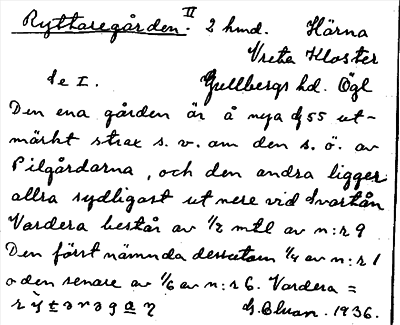 Ryttaregården. II 2 hmd. Härna
Vreta Kloster
Se I. Gullbergs hd. Ögl
Den ena gården är å nya G 55 ut-
märkt strax s. v. om den s. ö. av
Pilgårdarna, och den andra ligger
allra sydligast ut nere vid Svartån
Vardera består av 1/2 mtl av n:r 9
Den först nämnda dessutom 1/4 av n:r 1
o den senare av 1/6 av n:r 6. Vardera =
1936.